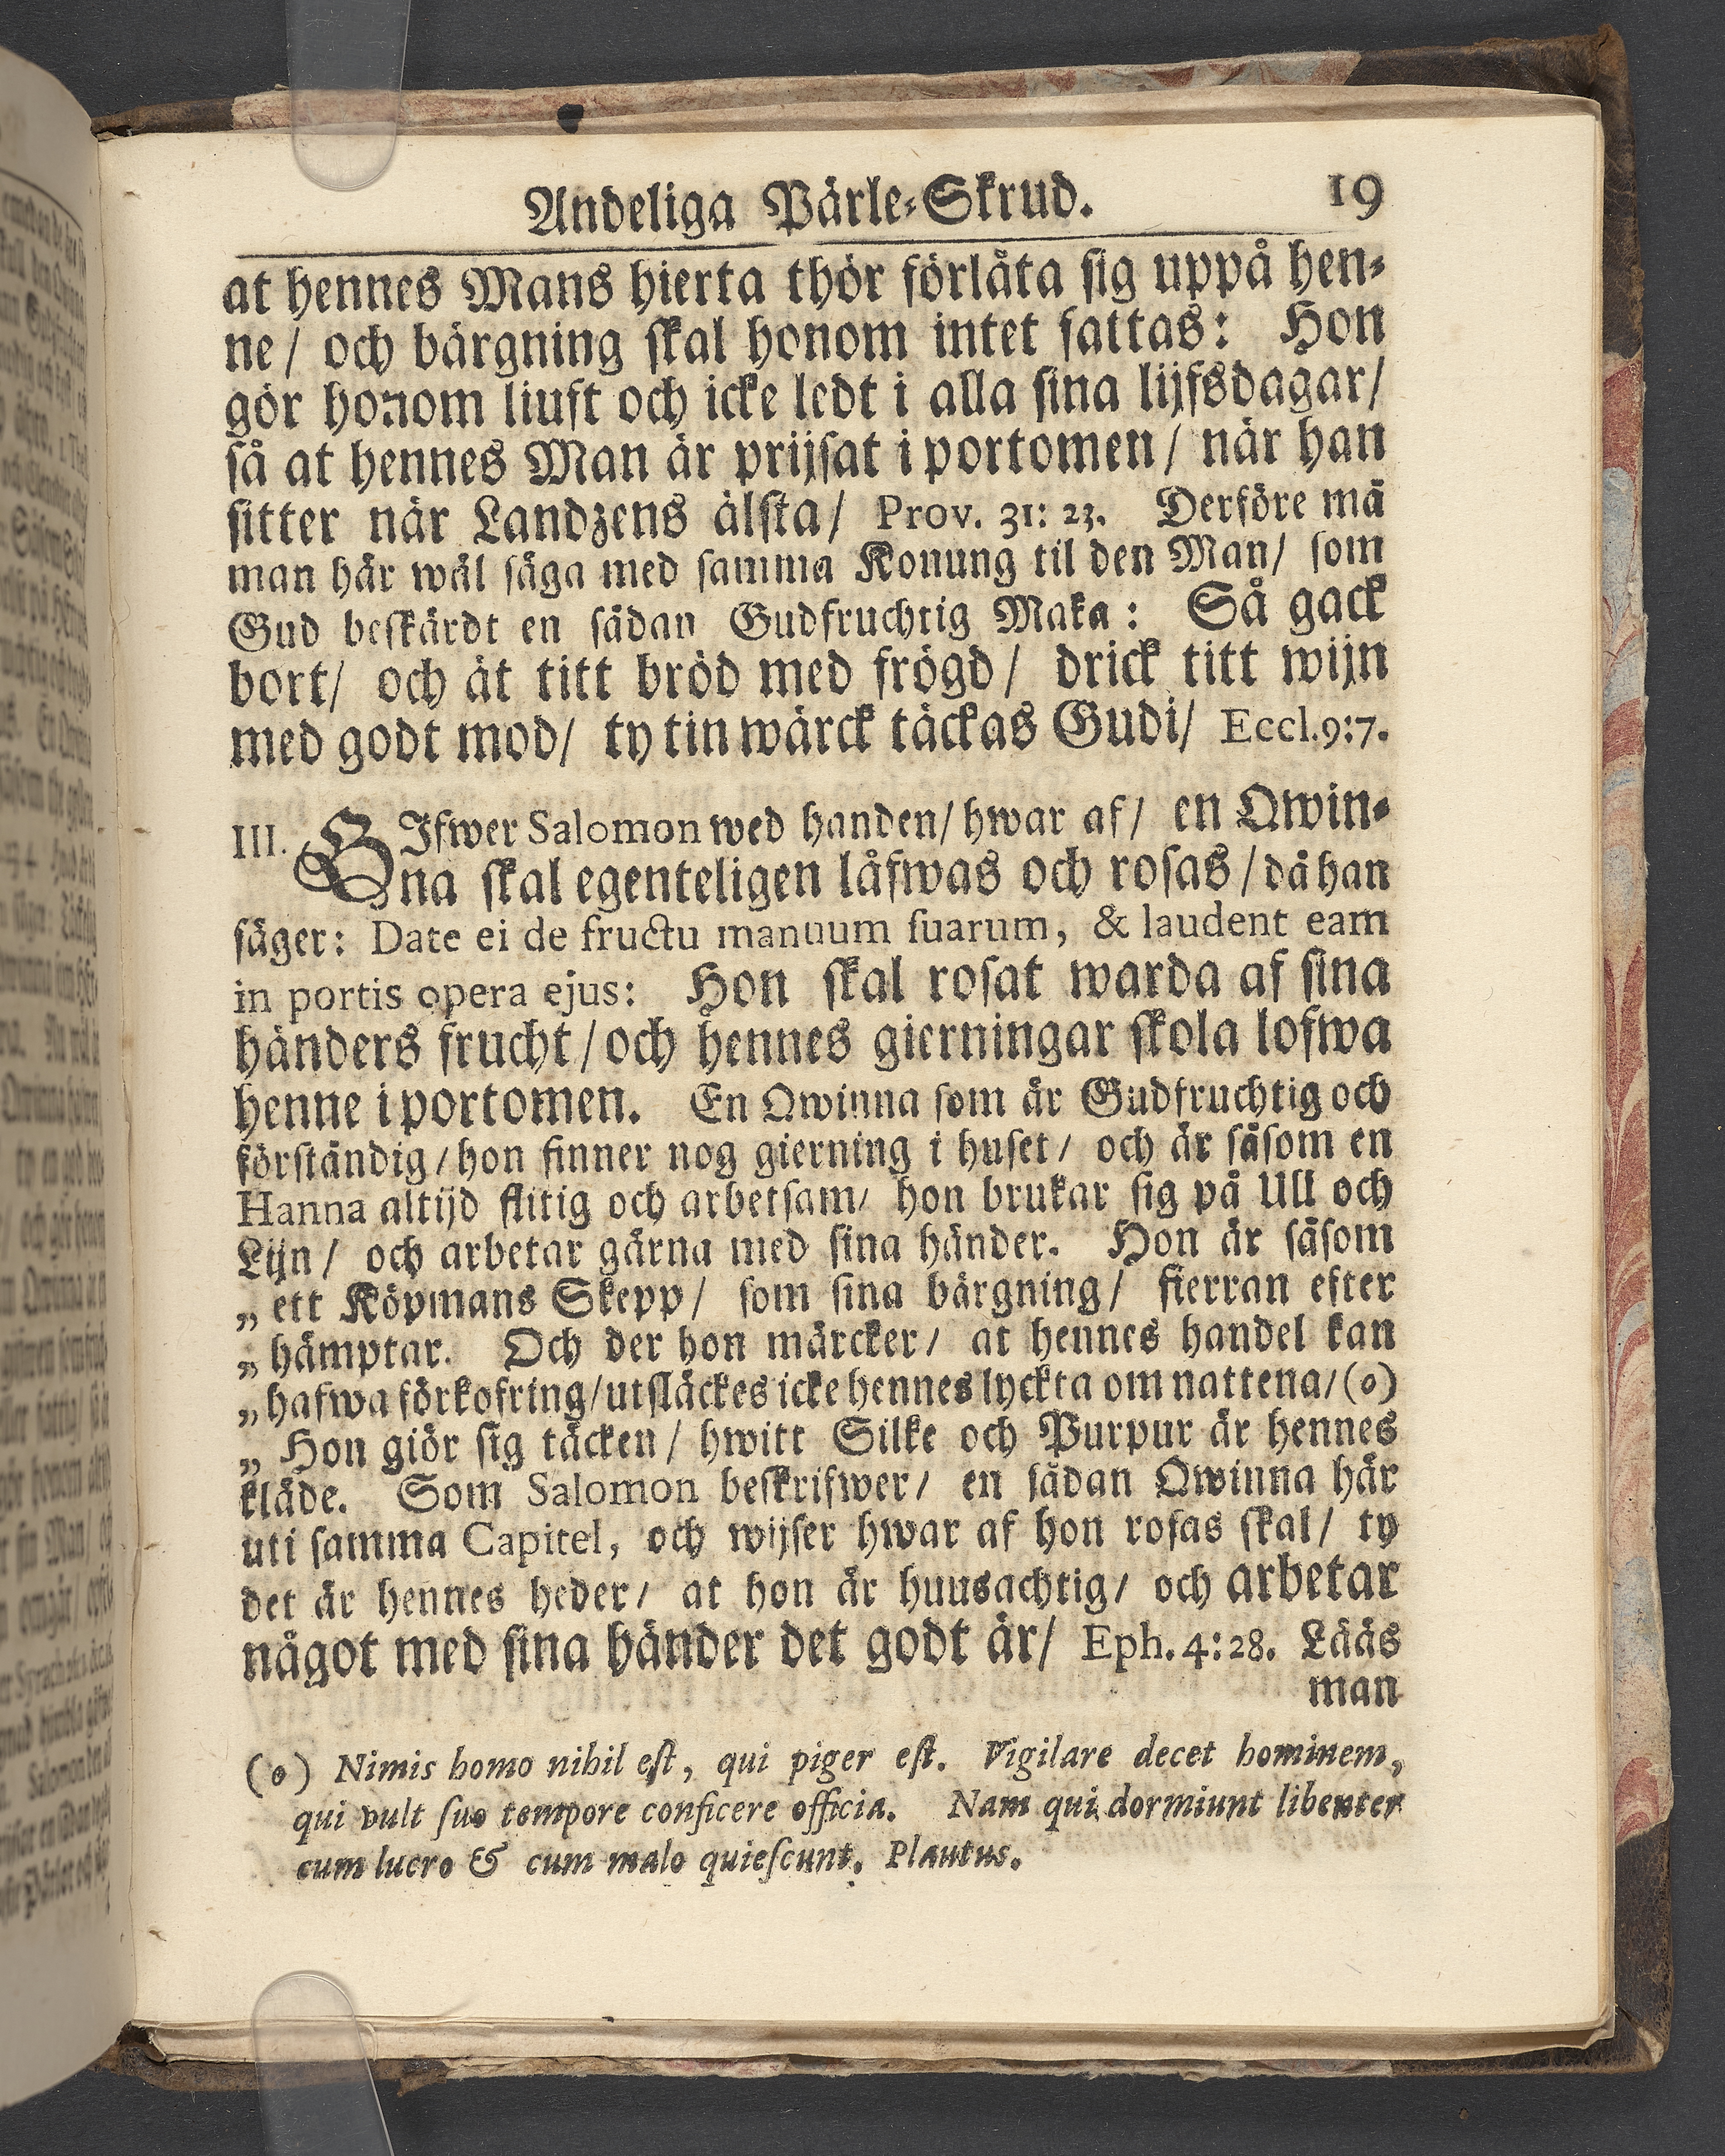 Andeliga Pärle-Skrud. 19
at hennes Mans hierta thör förlåta sig uppå hen-
ne/ och bärgning skal honom intet fattas: Hon
gör honom liuft och icke ledt i alla sina lijfsdagar/
så at hennes Man är prijsat i portomen/ när han
sitter när Landzens älsta/ Prov. 31: 23. Derföre må
man här wäl säga med samma Konung til den Man/ som
Gud beskärdt en sådan Gudfruchtig Maka: Så gack
bort/ och ät titt bröd med frögd/ drick titt wijn
med godt mod/ ty tin wärck täckas Gudi/ Eccl.9:7.
III. GIfwer Salomon wed handen/ hwar af/ en Qwin-
na skal egenteligen låfwas och rosas/ då han
säger: Date ei de fructu manuum suarum, & laudent eam
in portis opera ejus: Hon skal rosat warda af sina
händers frucht/ och hennes gierningar skola lofwa
henne i portomen. En Qwinna som är Gudfruchtig och
förståndig/ hon finner nog gierning i huset/ och är såsom en
Hanna altijd flitig och arbetsam/ hon brukar sig på Ull och
Lijn/ och arbetar gärna med sina händer. Hon är såsom
„ ett Köpmans Skepp/ som sina bärgning/ fierran efter
„ hämptar. Och der hon märcker/ at hennes handel kan
„ hafwa förkofring/ utsläckes icke hennes lyckta om nattena/ (o)
„ Hon giör sig täcken/ hwitt Silke och Purpur är hennes
kläde. Som Salomon beskrifwer/ en sådan Qwinna här
uti samma Capitel, och wijser hwar af hon rosas skal/ ty
det är hennes heder/ at hon är huusachtig/ och arbetar
något med sina händer det godt är/ Eph. 4: 28. Lääs
man
(o) Nimis homo nihil est, qui piger est. Vigilare decet hominem,
qui vult suo tempore conficere officia. Nam qui dormiunt libenter
cum lucro & cum malo quiescunt. Plautus.